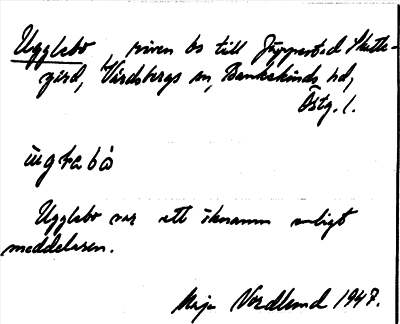 Ugglebo, riven bs till Jppersted Skatte-
gård, Vårdsbergs sn, Bankekinds hd,
Östg. l.
ùgḷabò
Ugglebo var ett öknamn enligt
meddelaren.
Maja Nordlund 1947.